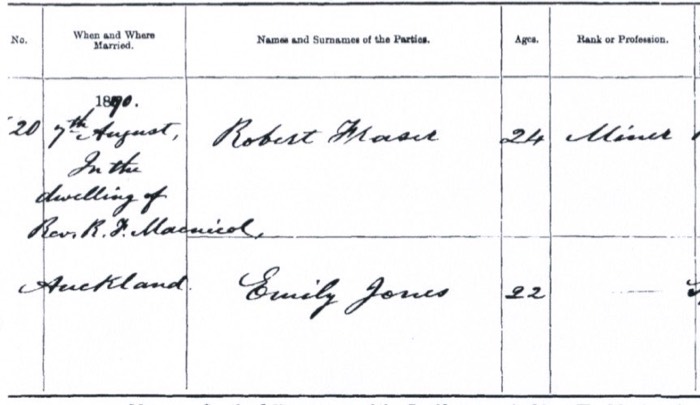 No. When and Where Married. Names and Surnames of the Parties. Ages. Rank or Profession.
1890.
20 7th August, Robert Fraser 24 Miner
In the
dwelling of
Rev. R. F. Macnicol,
Auckland. Emily Jones 22